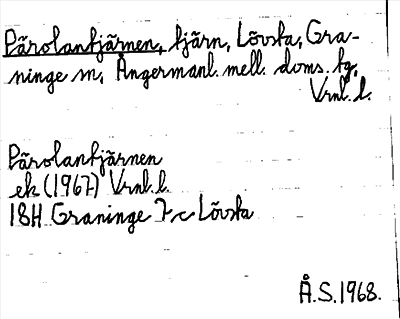 Pärolantjärnen, tjärn, Lövsta, Gra-
ninge sn, Ångermanl. mell. doms. tg.
Vrnl. l.
Pärolantjärnen
ek (1967) Vrnl. l.
18H Graninge 7 c Lövsta
Å.S. 1968.